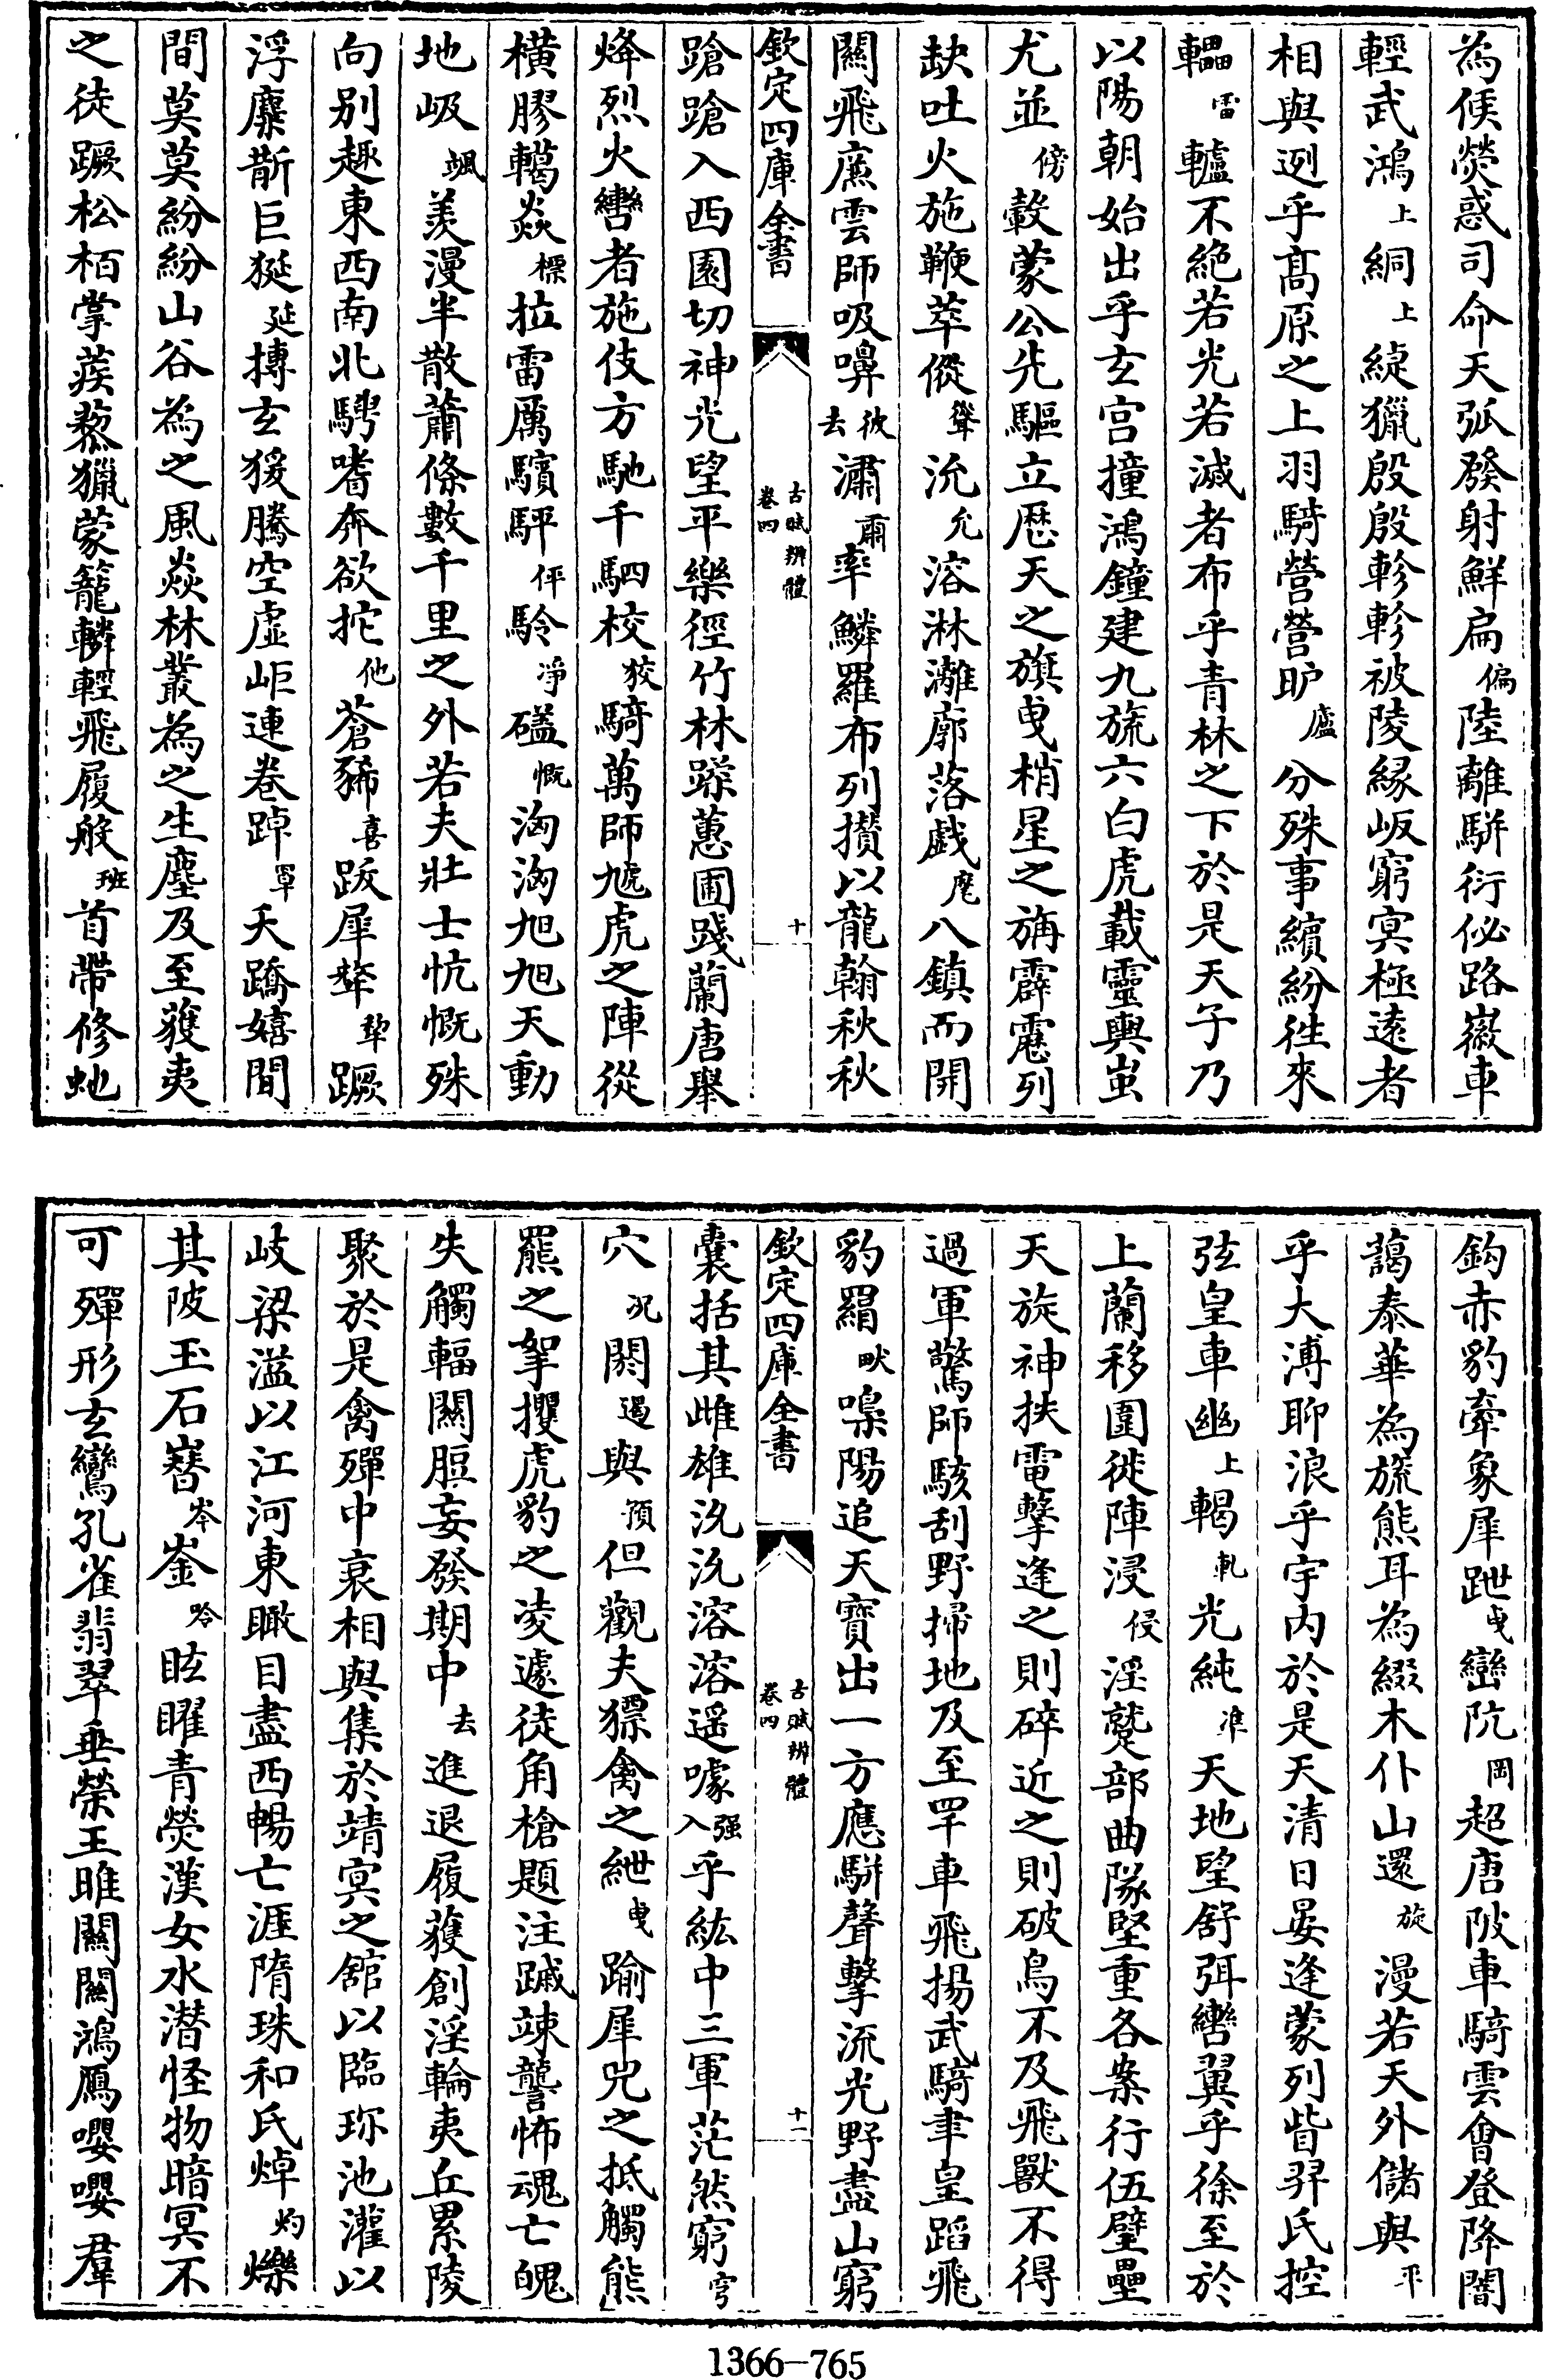 為候熒惑司命天弧發射鮮扁偏陸離駢衍佖路徽車
輕武鴻上絧上緁獵殷殷軫軫被陵緣岅窮冥極逺者
相與迾乎髙原之上羽騎營營昈廬分殊事繽紛往來
轠雷轤不絶若光若滅者布乎青林之下於是天子乃
以陽朝始出乎玄宫撞鴻鐘建九旒六白虎載靈輿蚩
尤並傍轂蒙公先驅立歴天之旗曳梢星之旃霹靂列
缺吐火施鞭萃傱聳沇允溶淋灕廓落戯麾八鎮而開
關飛㢘雲師吸嚊彼去潚肅率鱗羅布列攅以龍翰秋秋
欽定四庫全書 古賦辨體 卷四 十
蹌蹌入西園切神光望平樂徑竹林蹂蕙圃踐蘭唐舉
烽烈火轡者施伎方馳千駟校狡騎萬師虓虎之陣從
横膠轕猋標拉雷厲驞駍伻駖凈磕慨洶洶旭旭天動
地岋颯羨漫半散蕭條數千里之外若夫壯士忼慨殊
向别趣東西南北騁嗜奔欲拕他蒼豨喜跋犀犛犂蹶
浮麋斮巨狿延搏玄猨騰空虚岠連卷踔罩夭蹻嬉間
間莫莫紛紛山谷為之風猋林叢為之生塵及至獲夷
之徒蹶松栢掌蒺藜獵蒙籠轔輕飛履般班首帶修虵
鈎赤豹牽象犀跇曳巒阬岡超唐陂車騎雲會登降闇
藹泰華為旒熊耳為綴木仆山還旋漫若天外儲與平
乎大溥聊浪乎宇内於是天清日晏逄蒙列眥羿氏控
弦皇車幽上輵軋光純準天地望舒弭轡翼乎徐至於
上蘭移圍徙陣浸侵淫蹵部曲隊堅重各案行伍壁壘
天旋神抶電擊逢之則碎近之則破鳥不及飛獸不得
過軍驚師駭刮野掃地及至罕車飛揚武騎聿皇蹈飛
豹羂畎嘄陽追天寳出一方應駢聲擊流光野盡山窮
欽定四庫全書 古賦辨體 卷四 十一
囊括其雌雄沇沇溶溶遥噱强入乎紘中三軍茫然窮穹
穴况閼遏與預但觀夫猽禽之紲曳踰犀兕之抵觸熊
羆之挐攫虎豹之凌遽徒角槍題注䠞竦讋怖魂亡魄
失觸輻關脰妄發期中去進退履獲創淫輪夷丘累陵
聚於是禽殫中衰相與集於靖冥之舘以臨珎池灌以
岐梁溢以江河東瞰目盡西暢亡涯隋珠和氏焯灼爍
其陂玉石嶜岑崟吟眩曜青熒漢女水潜怪物暗冥不
可殫形玄鸞孔雀翡翠垂榮王雎關關鴻鴈嚶嚶羣
1366-765